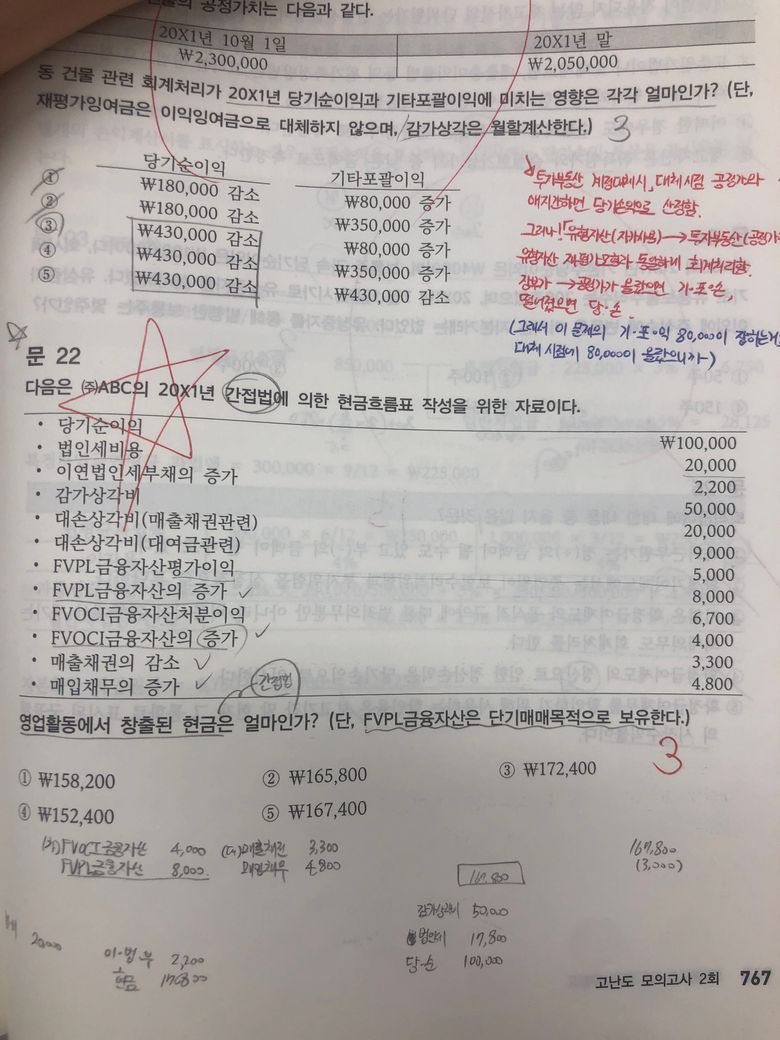 건물의 공정가치는 다음과 같다.
20X1년 10월 1일 20X1년 말
₩2,300,000 ₩2,050,000
동 건물 관련 회계처리가 20X1년 당기순이익과 기타포괄이익에 미치는 영향은 각각 얼마인가? (단,
재평가잉여금은 이익잉여금으로 대체하지 않으며, 감가상각은 월할계산한다.) 3
당기순이익 기타포괄이익
① ₩180,000 감소 ₩80,000 증가
② ₩180,000 감소 ₩350,000 증가
③ ₩430,000 감소 ₩80,000 증가
④ ₩430,000 감소 ₩350,000 증가
⑤ ₩430,000 감소 ₩430,000 감소
투자부동산 계정대체시, 대체시점 공정가와
차이나면 당기손익으로 산정함.
그러나! 「유형자산(자가사용) → 투자부동산(공정가
유형자산 재평가모형과 동일하게 회계처리함.
장부가 → 공정가가 올랐으면 기·포·손,
떨어졌으면 당·손.
(그래서 이 문제의 기·포·익 80,000이 잡히는거
대체 시점에 80,000이 올랐으니까)
문 22
다음은 ㈜ABC의 20X1년 간접법에 의한 현금흐름표 작성을 위한 자료이다.
• 당기순이익 ₩100,000
• 법인세비용 20,000
• 이연법인세부채의 증가 2,200
• 감가상각비 50,000
• 대손상각비(매출채권관련) 20,000
• 대손상각비(대여금관련) 9,000
• FVPL금융자산평가이익 5,000
• FVPL금융자산의 증가 ✓ 8,000
• FVOCI금융자산처분이익 6,700
• FVOCI금융자산의 증가 ✓ 4,000
• 매출채권의 감소 ✓ 3,300
• 매입채무의 증가 ✓ 4.800
간접법
영업활동에서 창출된 현금은 얼마인가? (단, FVPL금융자산은 단기매매목적으로 보유한다.)
3
① ₩158,200 ② ₩165,800 ③ ₩172,400
④ ₩152,400 ⑤ ₩167,400
(차) FVOCI금융자산 4,000 (대) 매출채권 3,300
FVPL금융자산 8,000 매입채무 4,800
167,800
(3,000)
167,800
감가상각비 50,000
법인세 17,800
당·순 100,000
20,000
이·법·부 2,200
현금 17,800
고난도 모의고사 2회 767